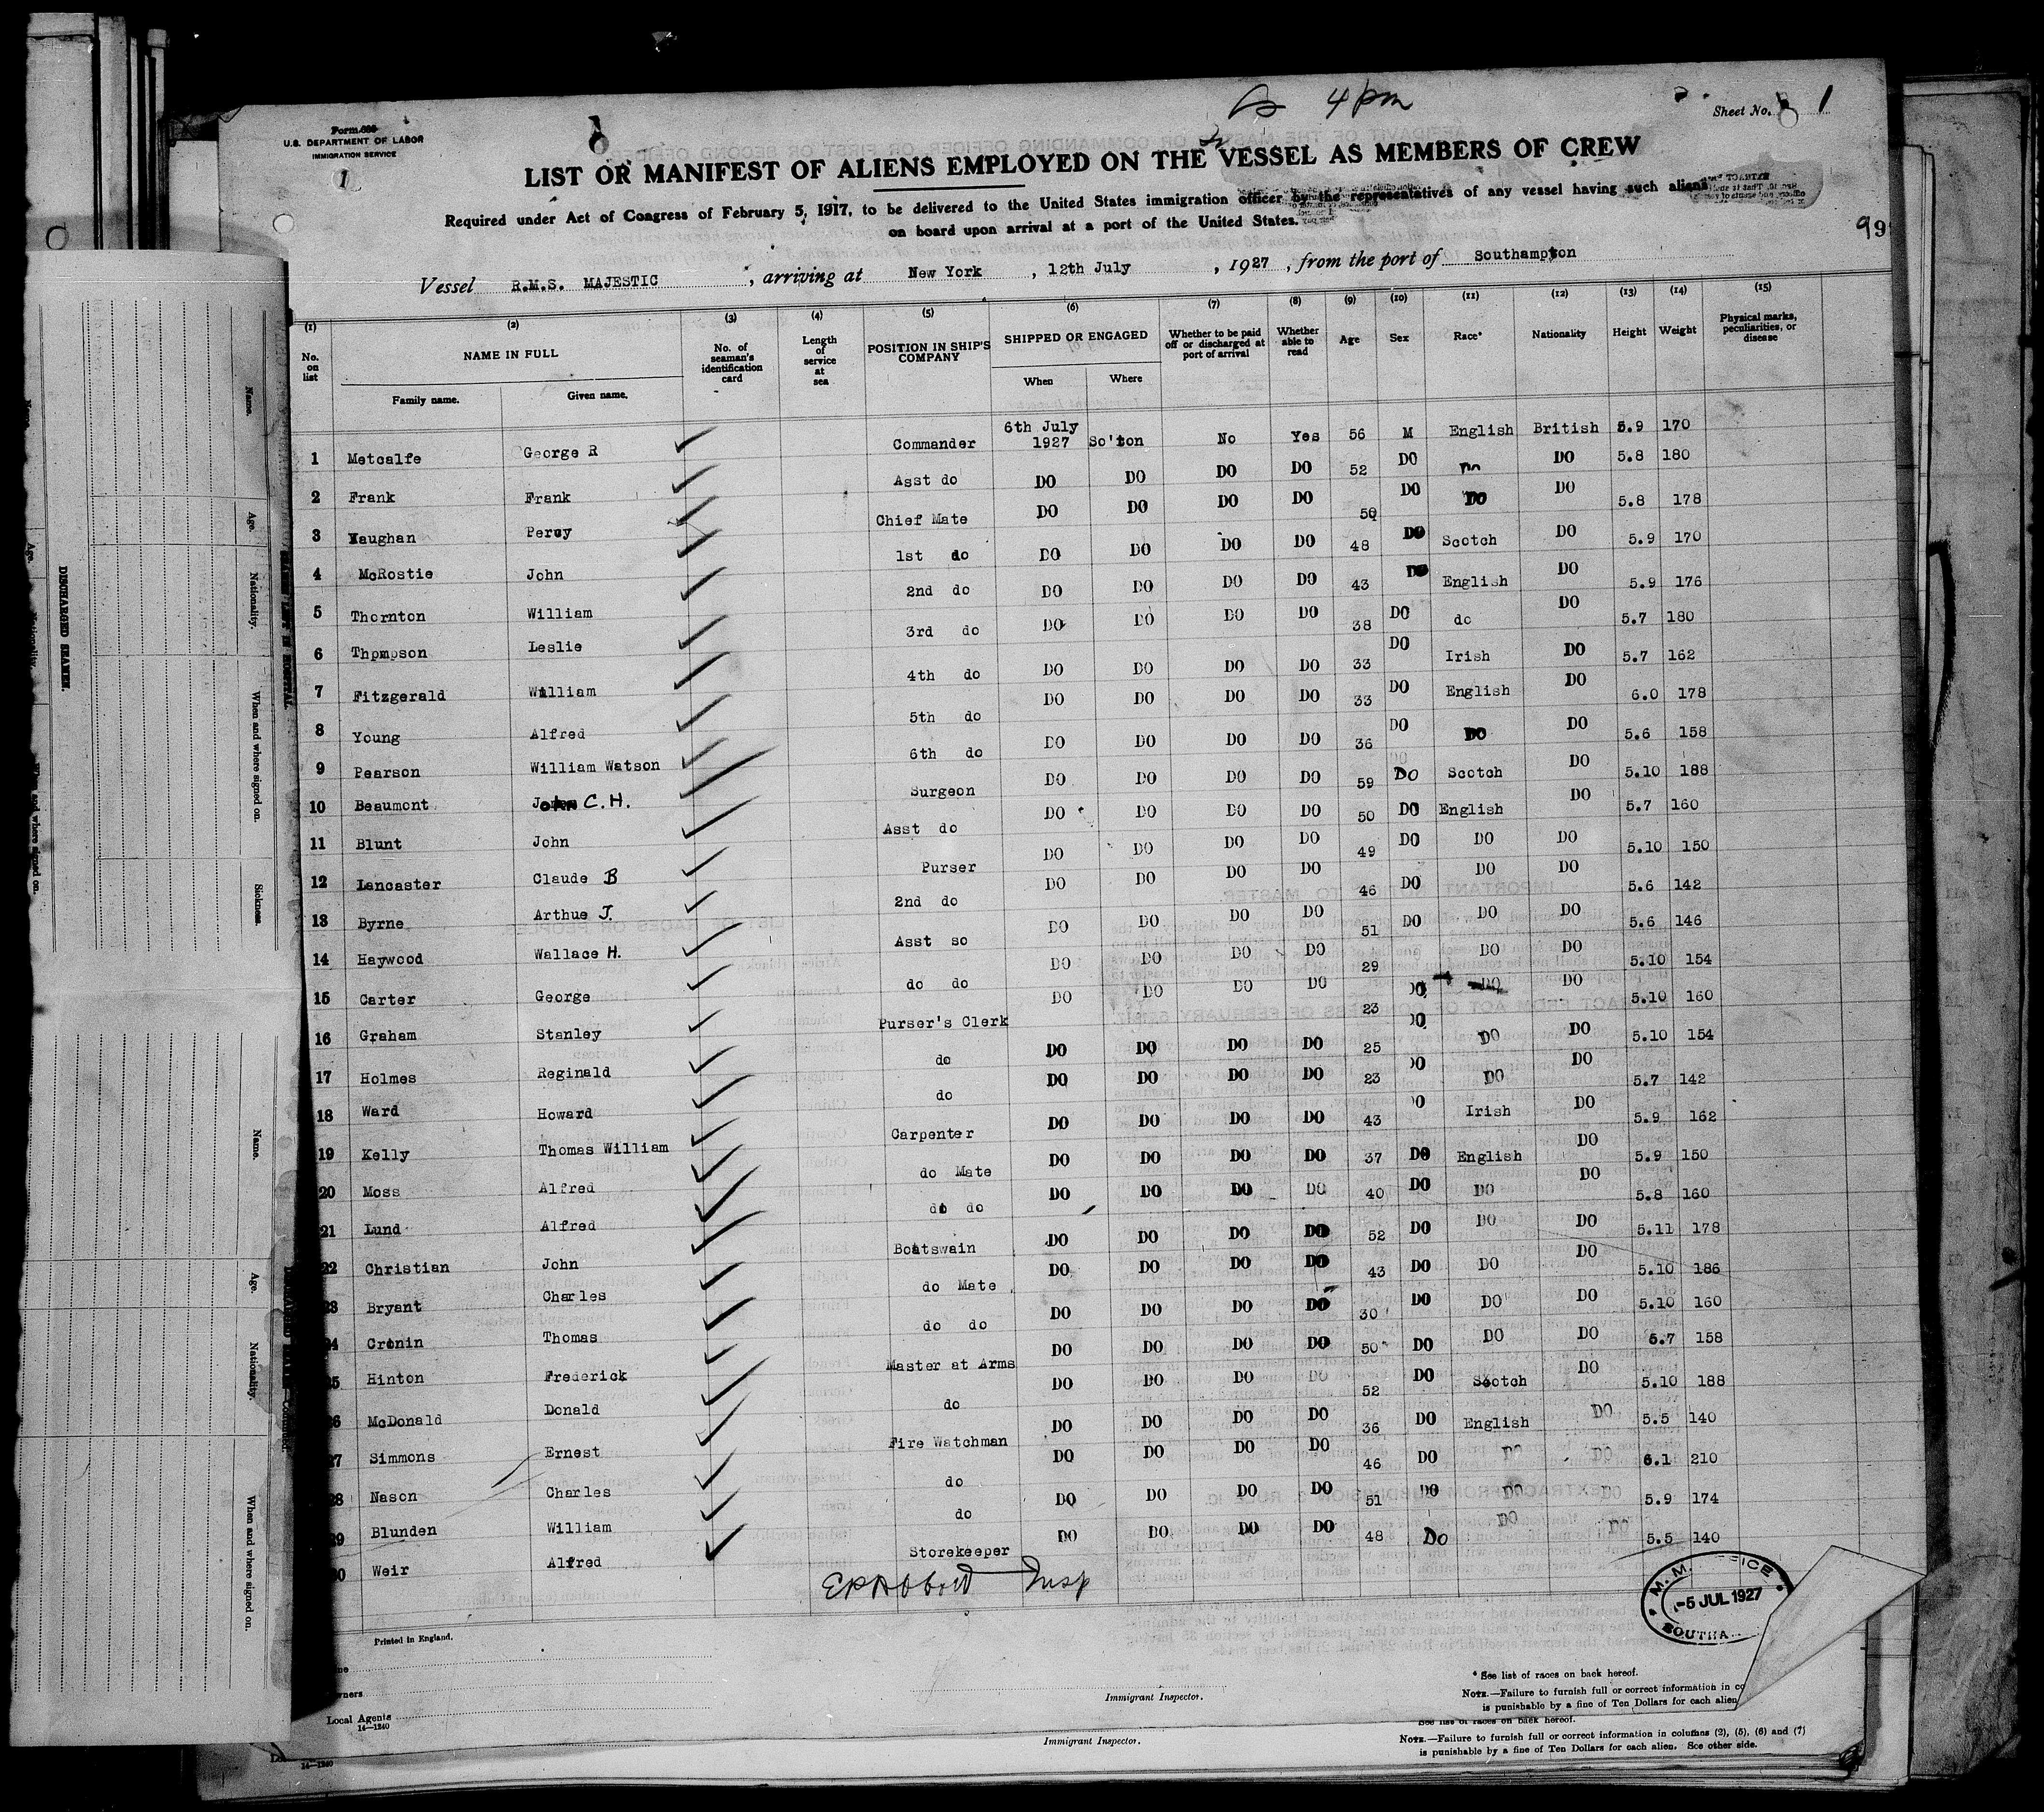 4 pm
Form 680
U. S. DEPARTMENT OF LABOR
IMMIGRATION SERVICE
1
Sheet No. 1
LIST OR MANIFEST OF ALIENS EMPLOYED ON THE VESSEL AS MEMBERS OF CREW
Required under Act of Congress of February 5, 1917, to be delivered to the United States immigration officer by the representatives of any vessel having such aliens
on board upon arrival at a port of the United States.
99
Vessel R.M.S. MAJESTIC, arriving at New York, 12th July, 1927, from the port of Southampton
(1) No. on list (2) NAME IN FULL Family name. Given name. (3) No. of seaman's identification card (4) Length of service at sea (5) POSITION IN SHIP'S COMPANY (6) SHIPPED OR ENGAGED When Where (7) Whether to be paid off or discharged at port of arrival (8) Whether able to read (9) Age (10) Sex (11) Race* (12) Nationality (13) Height (14) Weight (15) Physical marks, peculiarities, or disease
1 Metcalfe George R Commander 6th July 1927 So'ton No Yes 56 M English British 5.9 170
2 Frank Frank Asst do DO DO DO DO 52 DO Do DO 5.8 180
3 Vaughan Percy Chief Mate DO DO DO DO 50 DO DO DO 5.8 178
4 McRostie John 1st do DO DO DO DO 48 DO Scotch DO 5.9 170
5 Thornton William 2nd do DO DO DO DO 43 DO English DO 5.9 176
6 Thpmpson Leslie 3rd do DO DO DO DO 38 DO do DO 5.7 180
7 Fitzgerald William 4th do DO DO DO DO 33 DO Irish DO 5.7 162
8 Young Alfred 5th do DO DO DO DO 33 DO English DO 6.0 178
9 Pearson William Watson 6th do DO DO DO DO 36 DO DO DO 5.6 158
10 Beaumont John C.H. Surgeon DO DO DO DO 59 Do Scotch DO 5.10 188
11 Blunt John Asst do DO DO DO DO 50 DO English DO 5.7 160
12 Lancaster Claude B Purser DO DO DO DO 49 DO DO DO 5.10 150
13 Byrne Arthue J. 2nd do DO DO DO DO 46 DO DO DO 5.6 142
14 Haywood Wallace H. Asst so DO DO DO DO 51 DO DO DO 5.6 146
15 Carter George do do DO DO DO DO 29 DO DO 5.10 154
16 Graham Stanley Purser's Clerk DO DO DO DO 23 DO DO DO 5.10 160
17 Holmes Reginald do DO DO DO DO 25 DO DO DO 5.10 154
18 Ward Howard do DO DO DO DO 23 DO DO DO 5.7 142
19 Kelly Thomas William Carpenter DO DO DO DO 43 DO Irish DO 5.9 162
20 Moss Alfred do Mate DO DO DO DO 37 DO English DO 5.9 150
21 Lund Alfred do do DO DO DO DO 40 DO DO DO 5.8 160
22 Christian John Boatswain DO DO DO DO 52 DO DO DO 5.11 178
23 Bryant Charles do Mate DO DO DO DO 43 DO DO DO 5.10 186
24 Cronin Thomas do do DO DO DO DO 30 DO DO DO 5.10 160
25 Hinton Frederick Master at Arms DO DO DO DO 50 DO DO DO 5.7 158
26 McDonald Donald do DO DO DO DO 52 DO Scotch DO 5.10 188
27 Simmons Ernest Fire Watchman DO DO DO DO 36 DO English DO 5.5 140
28 Nason Charles do DO DO DO DO 46 DO DO DO 6.1 210
29 Blunden William do DO DO DO DO 51 DO DO DO 5.9 174
30 Weir Alfred Storekeeper DO DO DO DO 48 Do DO DO 5.5 140
Insp
M. M. OFFICE
-5 JUL 1927
SOUTHA
Printed in England.
Local Agents
14—1240
Immigrant Inspector.
* See list of races on back hereof.
NOTE.—Failure to furnish full or correct information in co
is punishable by a fine of Ten Dollars for each alien
See list of races on back hereof.
Immigrant Inspector.
NOTE.—Failure to furnish full or correct information in columns (2), (5), (6) and (7)
is punishable by a fine of Ten Dollars for each alien. See other side.
14—1240
DISCHARGED SEAMEN.
Name.
Age.
Nationality.
When and where signed on.
Sickness.
Name.
Age.
Nationality.
When and where signed on.